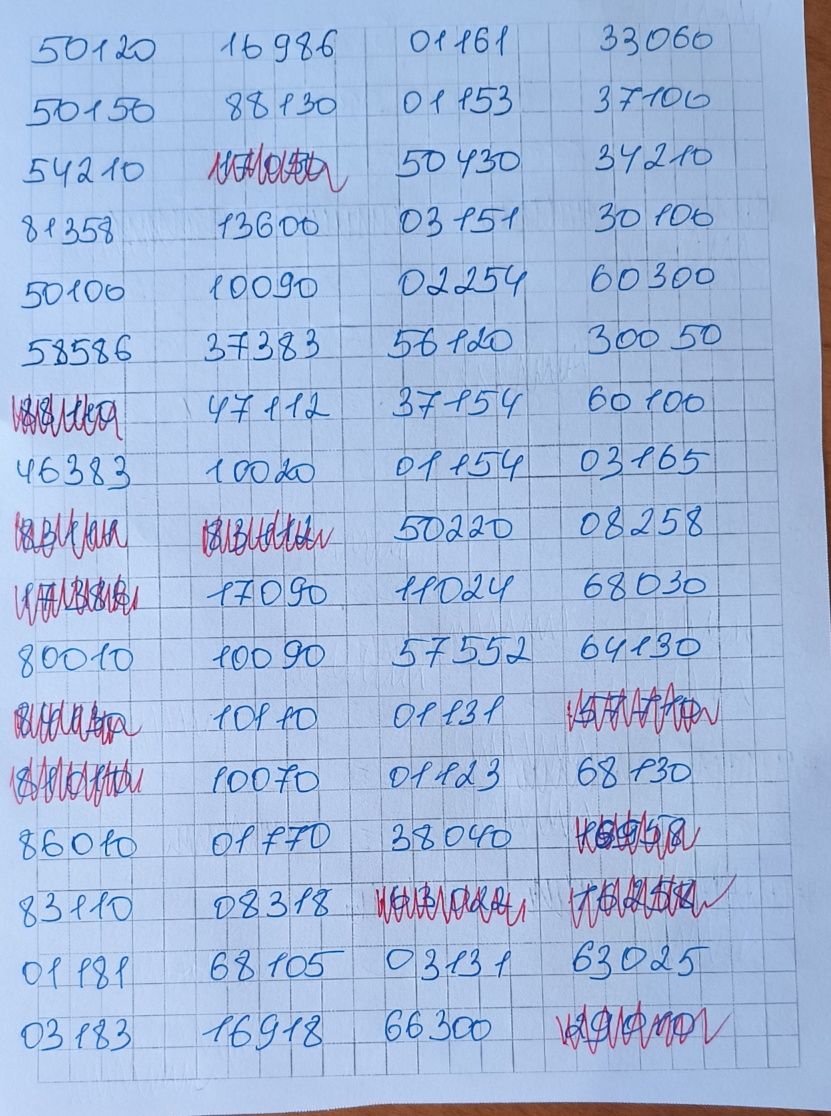 50120 16986 01161 33060
50150 88130 01153 37100
54210 50430 34210
81358 13600 03151 30100
50100 10090 02254 60300
58586 37383 56120 30050
47112 37154 60100
46383 10020 01154 03165
50220 08258
17090 11024 68030
80010 10090 57552 64130
10110 01131
10070 01123 68130
86010 01770 38040
83110 08318
01181 68105 03131 63025
03183 16918 66300